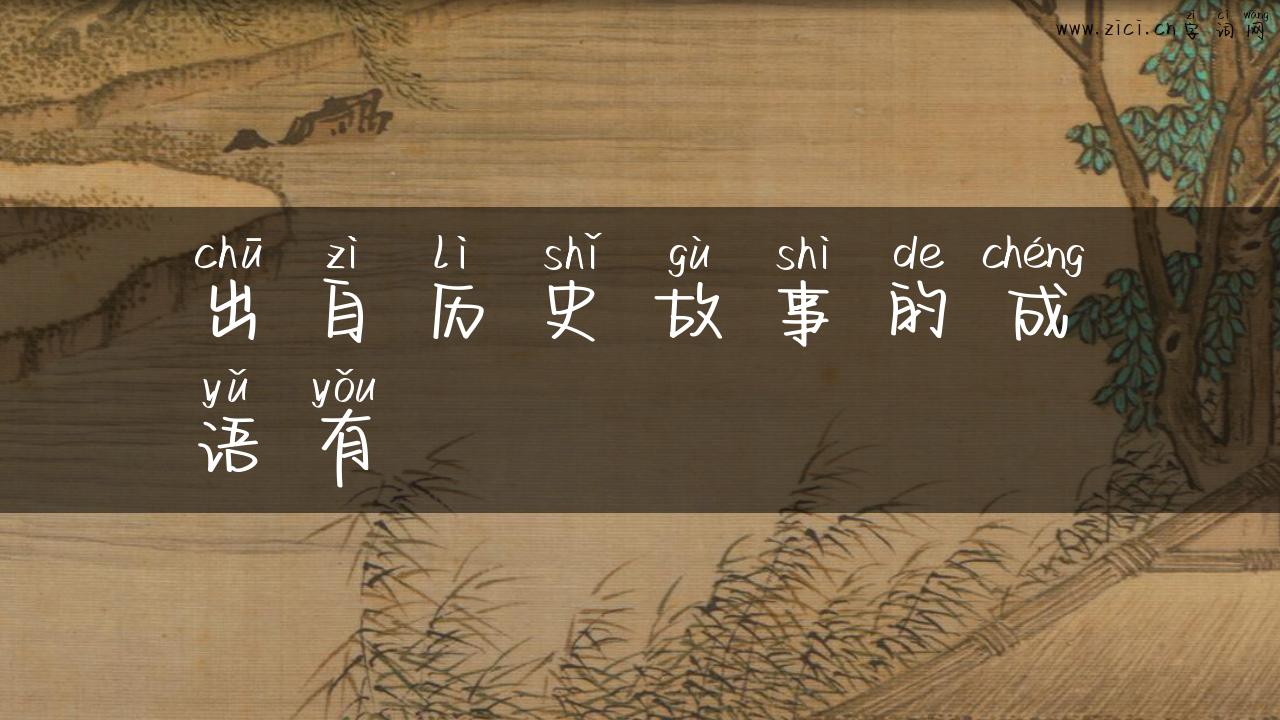 zì cí wǎng
www.zici.cn字词网
chū zì lì shǐ gù shì de chéng
出自历史故事的成
yǔ yǒu
语有